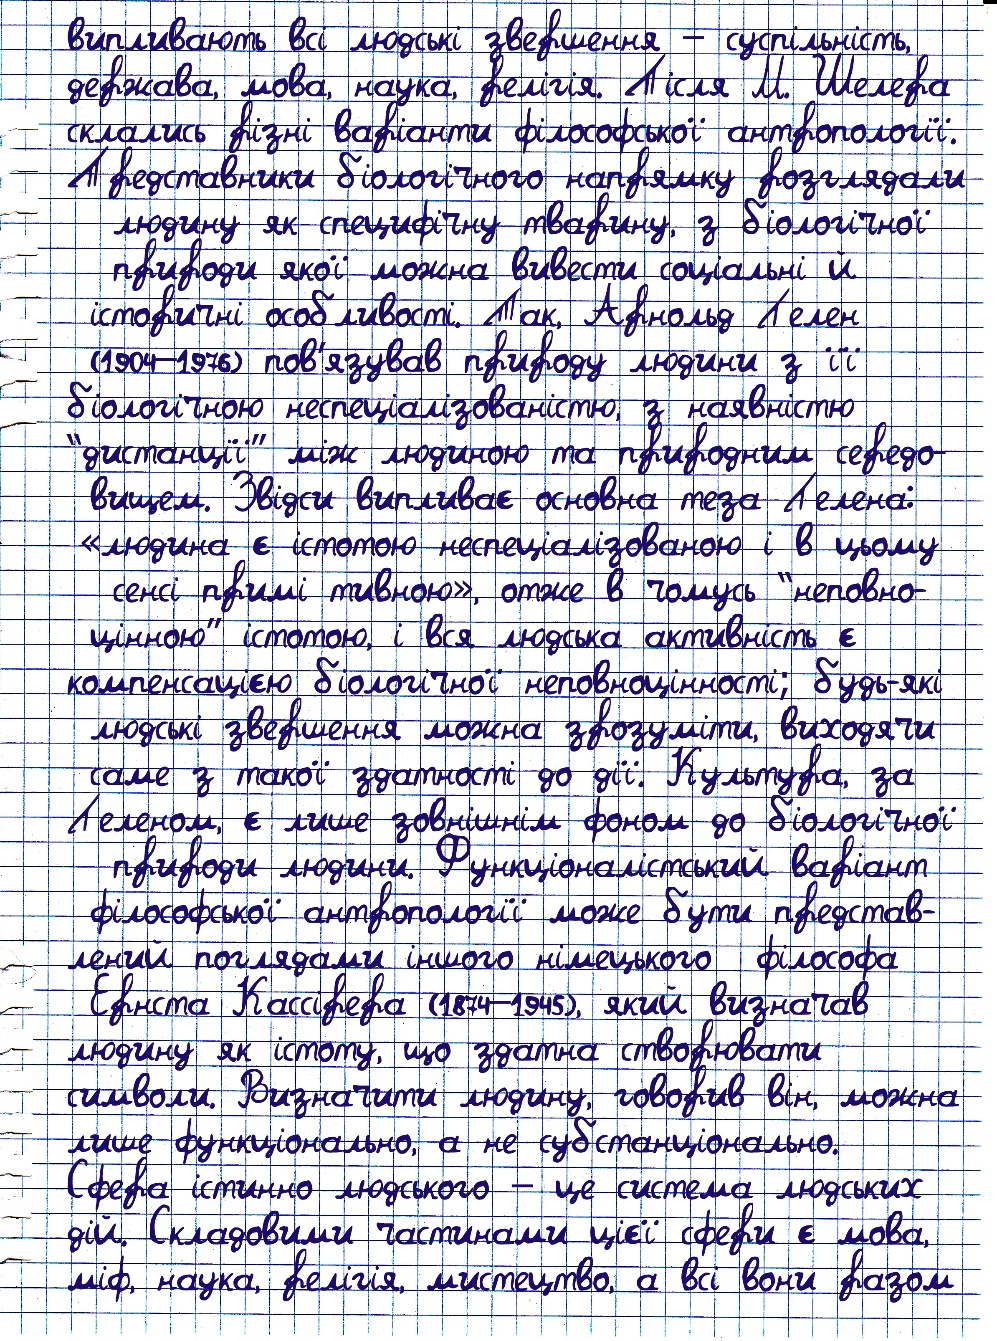 випливають всі людські звершення – суспільність,
держава, мова, наука, релігія. Після М. Шелера
склались різні варіанти філософської антропології.
Представники біологічного напрямку розглядали
людину як специфічну тварину, з біологічної
природи якої можна вивести соціальні й
історичні особливості. Так, Арнольд Гелен
(1904—1976) пов'язував природу людини з її
біологічною неспеціалізованістю, з наявністю
"дистанції" між людиною та природним середо-
вищем. Звідси випливає основна теза Гелена:
«людина є істотою неспеціалізованою і в цьому
сенсі примі тивною», отже в чомусь "неповно-
цінною" істотою, і вся людська активність є
компенсацією біологічної неповноцінності; будь-які
людські звершення можна зрозуміти, виходячи
саме з такої здатності до дії. Культура, за
Геленом, є лише зовнішнім фоном до біологічної
природи людини. Функціоналістський варіант
філософської антропології може бути представ-
лений поглядами іншого німецького філософа
Ернста Кассірера (1874—1945), який визначав
людину як істоту, що здатна створювати
символи. Визначити людину, говорив він, можна
лише функціонально, а не субстанціонально.
Сфера істинно людського – це система людських
дій. Складовими частинами цієї сфери є мова,
міф, наука, релігія, мистецтво, а всі вони разом